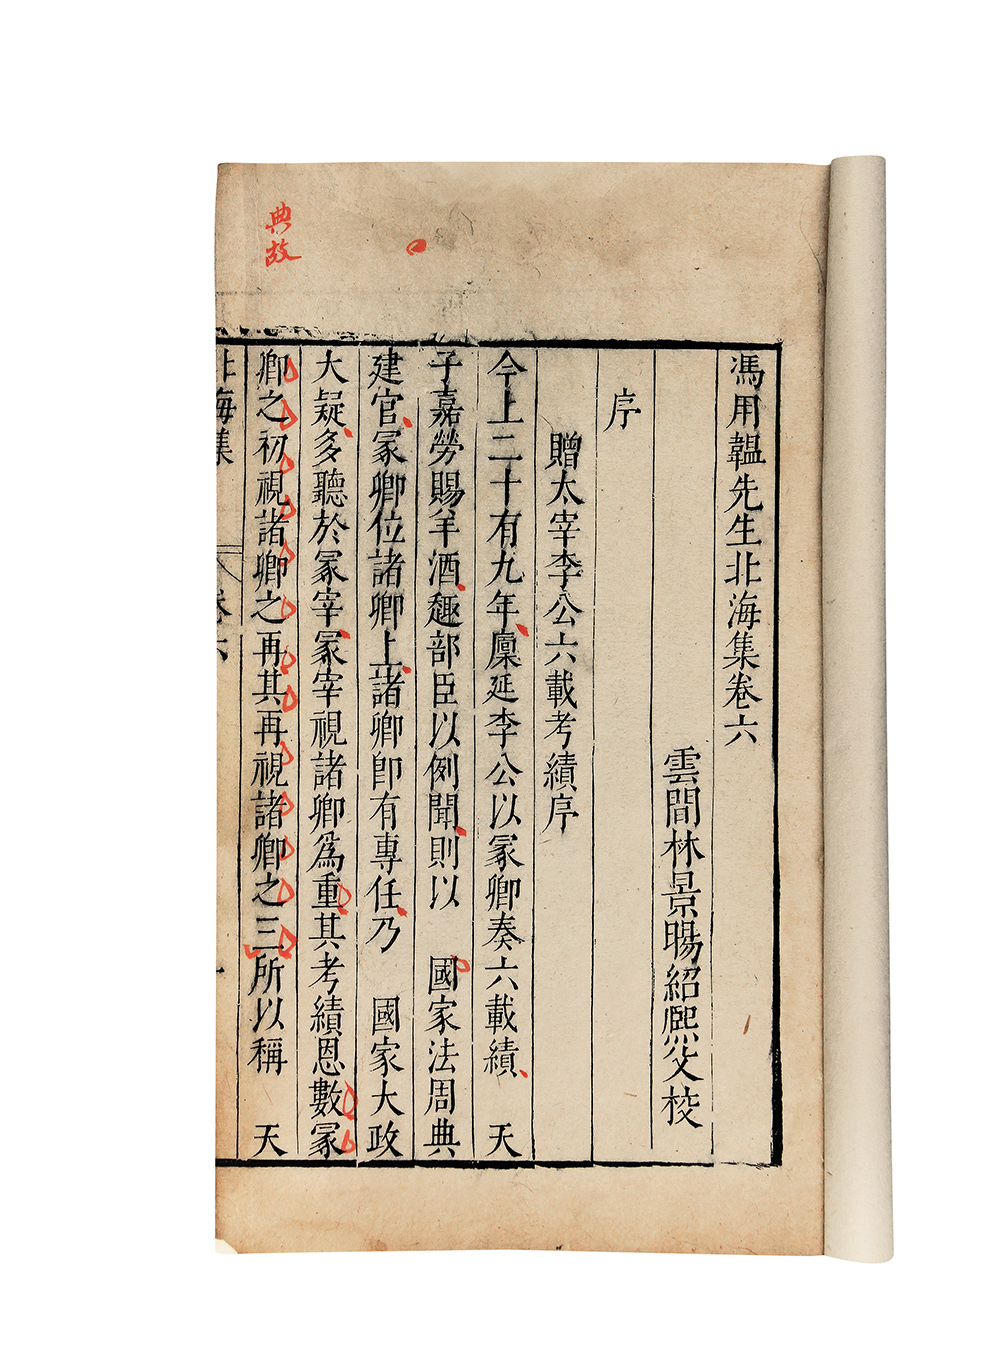 馮用韞先生北海集卷六
雲間林景暘紹熈父校
序
贈太宰李公六載考績序
今上二十有九年廪延李公以冢卿奏六載績 天
子嘉勞賜羊酒趣部臣以例聞則以 國家法周典
建官冢卿位諸卿上諸卿卽有專任乃 國家大政
大疑多聽於冢宰冢宰視諸卿為重其考績恩數冢
卿之初視諸卿之再其再視諸卿之三所以稱 天
北海集 卷六 一
典故